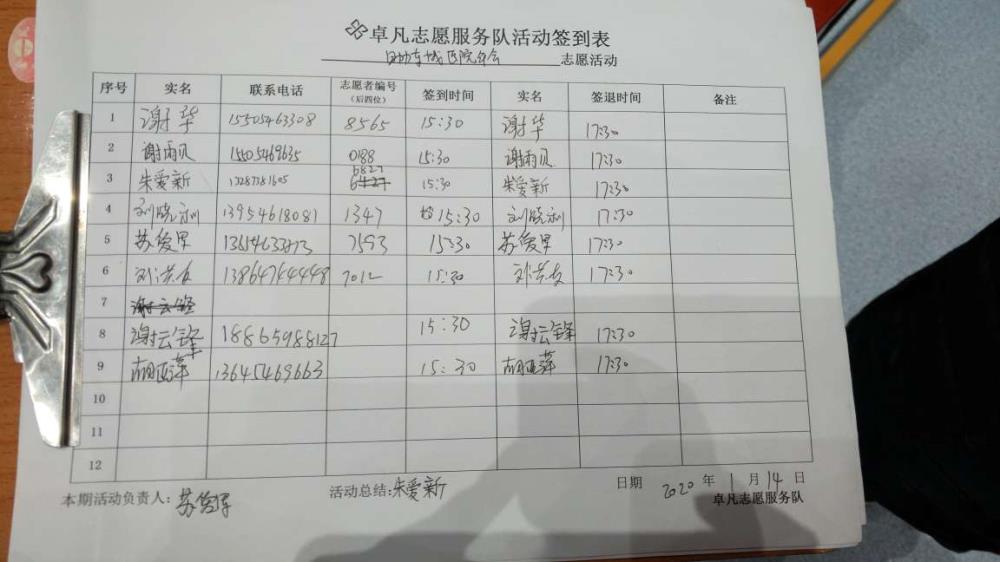 卓凡志愿服务队活动签到表
东城医院年会 志愿活动
序号 实名 联系电话 志愿者编号（后四位） 签到时间 实名 签退时间 备注
1 谢华 15505463308 8565 15:30 谢华 17:30
2 谢雨贝 15505469635 0188 15:30 谢雨贝 17:30
3 朱爱新 6827 15:30 朱爱新 17:30
4 刘晓利 13954618081 1347 15:30 刘晓利 17:30
5 苏俊 7593 15:30 苏俊 17:30
6 刘洪友 13864744448 7012 15:30 刘洪友 17:30
7 谢云锋
8 谢云锋 18865988127 15:30 谢云锋 17:30
9 胡亚萍 13645469663 15:30 胡亚萍 17:30
10
11
12
本期活动负责人： 活动总结：朱爱新 日期 2020 年 1 月 14 日
卓凡志愿服务队